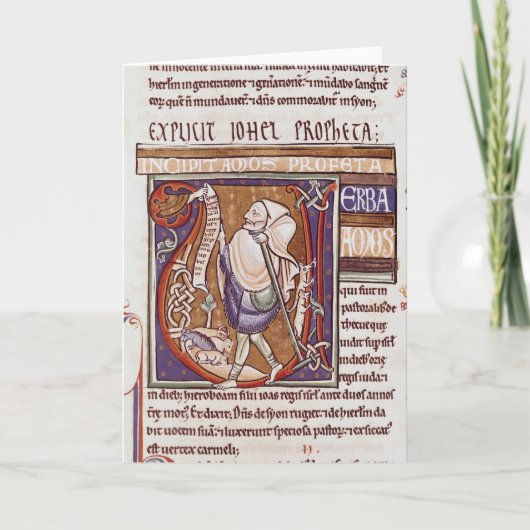 ne innocente
hierlm in generatione & generatione: & mundabo sanguinē
eorū quē ñ mundauerā: & dñs commorabit in syon;
EXPLICIT JOHEL PROPHETA;
INCIPIT AMOS PROFETA
VERBA
AMOS
qui fuit in
pastoralib' de
thecue que
uidit sup isrł
in dieb' ozie
regis iuda &
in dieb; hieroboam filii ioas regis isrł ante duos annos
Et dixit; Dñs de syon rugiet & de hierłm da
bit uocem suā: & luxerunt speciosa pastorū & exsiccat'
est uertex carmeli;